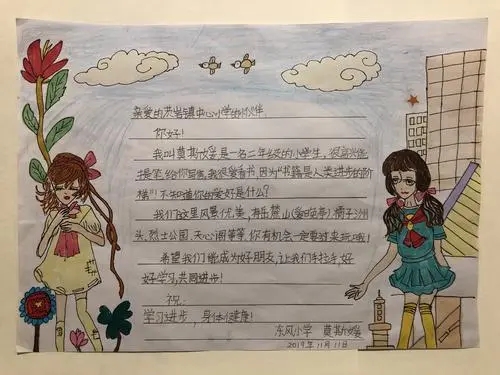 亲爱的茨岩镇中心小学的小伙伴
你好!
我叫莫斯媛是一名二年级的小学生,很高兴能
提笔给你写信,我很爱看书,因为“书籍是人类进步的阶
梯”!不知道你的爱好是什么?
我们这里风景优美,有岳麓山(爱晚亭)、橘子洲
头、烈士公园、天心阁等等,你有机会一定要过来玩哦!
希望我们能成为好朋友,让我们手拉手好
好学习,共同进步!
祝:
学习进步,身体健康!
东风小学 莫斯媛
2019年11月11日